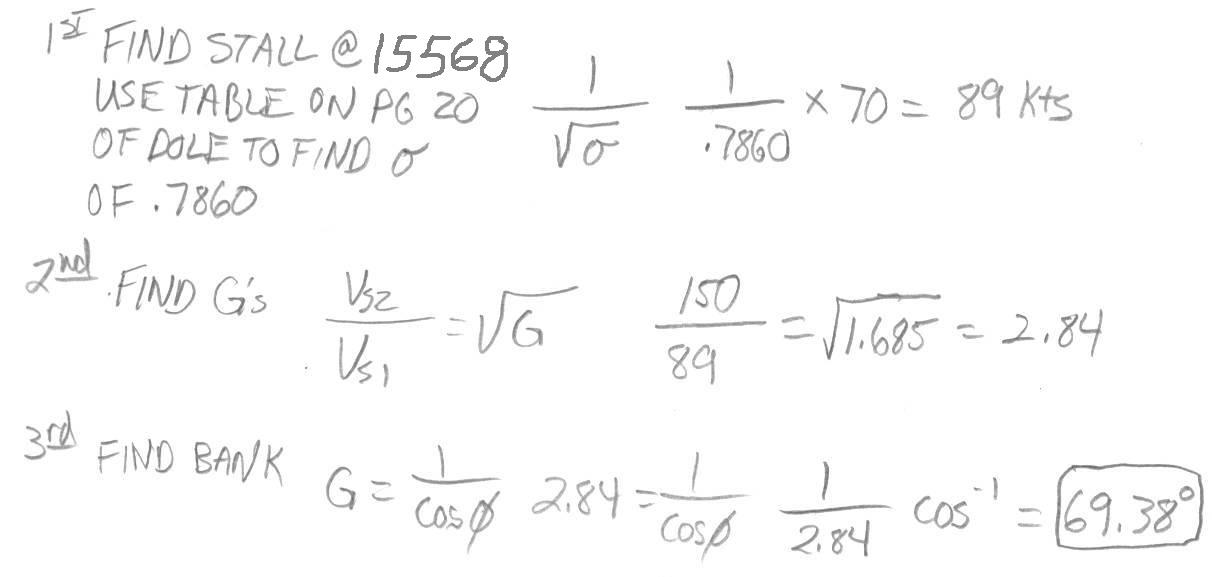 1ST FIND STALL @ 15568
USE TABLE ON PG 20
OF DOLE TO FIND σ
OF .7860
1/√σ 1/.7860 × 70 = 89 Kts
2nd FIND G's VS2/VS1 = √G 150/89 = √1.685 = 2.84
3rd FIND BANK G = 1/cosφ 2.84 = 1/cosφ 1/2.84 cos⁻¹ = 69.38°